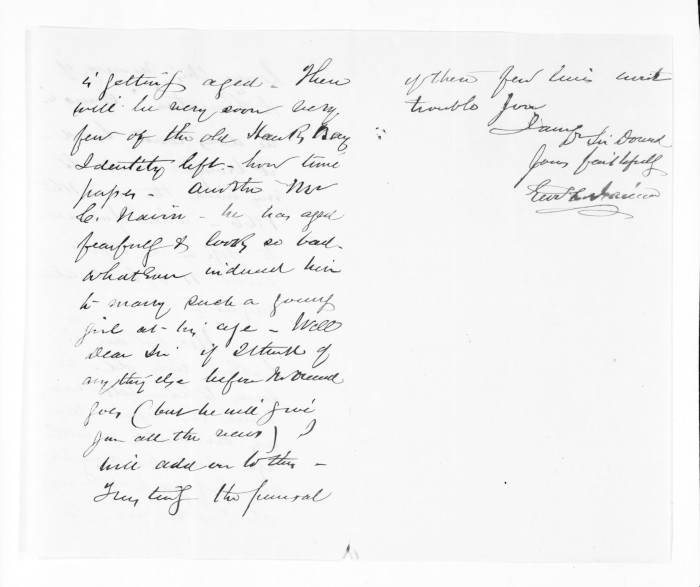 is getting aged - There
will be very soon very
few of the old Hawk's Bay
Identity left - how time
passes - Another Mr
C. Nairn - he has aged
fearfully & looks so bad -
whatever induced him
to marry such a young
girl at his age - Well
Dear Sir if I think of
anything else before
goes (but he will give
you all the news) I
will add on to this -
Trusting the perusal
of these few lines will
trouble you
I am
Dr Sir Donald
Yours faithfully